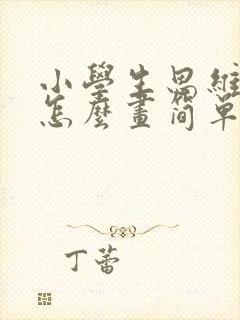 小學生思維
怎麼畫簡單
丁蕾